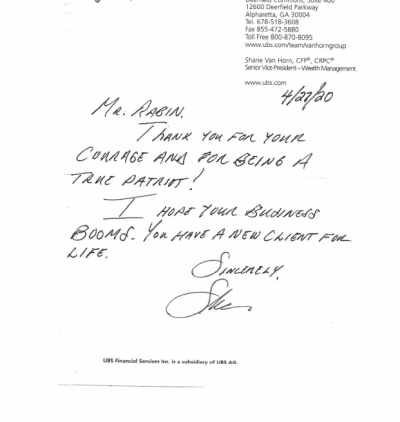 Deerfield Commons, Suite 400
12600 Deerfield Parkway
Alpharetta, GA 30004
Tel. 678-518-3608
Fax 855-472-5880
Toll Free 800-870-8095
www.ubs.com/team/vanhorngroup
Shane Van Horn, CFP®, CRPC®
Senior Vice President–Wealth Management
www.ubs.com
4/27/20
Mr. Rabin.
Thank you for your
courage and for being a
true patriot!
I hope your business
booms. You have a new client for
life.
Sincerely,
UBS Financial Services Inc. is a subsidiary of UBS AG.